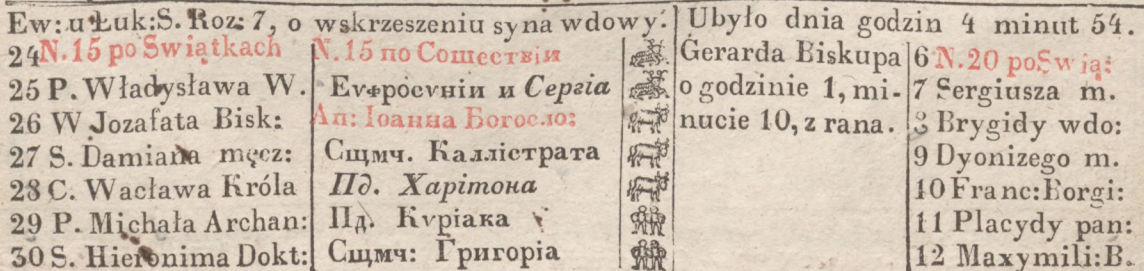 Ew: u Łuk: S. Roz: 7, o wskrzeszeniu syna wdowy. Ubyło dnia godzin 4 minut 54.
24 N. 15 po Swiątkach N. 15 по Сошествіи Gerarda Biskupa 6 N. 20 po Swią:
25 P. Władysława W. Еѵфросѵніи и Сергіа o godzinie 1, mi- 7 Sergiusza m.
26 W Jozafata Bisk: Ап: Іоанна Богосло: nucie 10, z rana. 8 Brygidy wdo:
27 S. Damiana męcz: Сщмч. Каллістрата 9 Dyonizego m.
28 C. Wacława Króla Пд. Харітона 10 Franc: Borgi:
29 P. Michała Archan: Пд. Кѵріака 11 Placydy pan:
30 S. Hieronima Dokt: Сщмч: Григоріа 12 Maxymili: B.